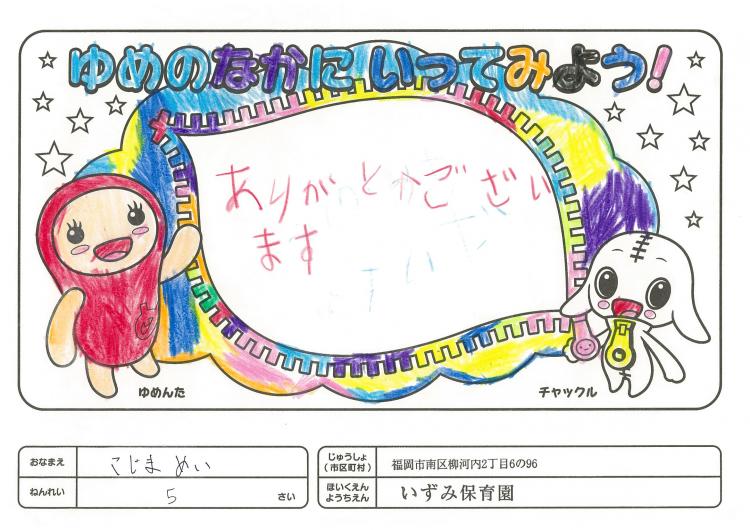 ゆめのなかにいってみよう!
ありがとかござい
ます
ゆめんた
チャックル
おなまえ こじま めい
ねんれい 5 さい
じゅうしょ
(市区町村) 福岡市南区柳河内2丁目6の96
ほいくえん
ようちえん いずみ保育園